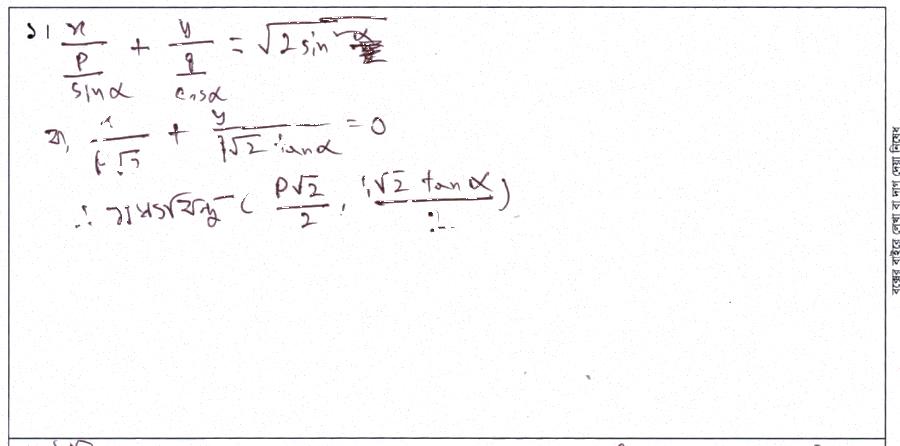 ১। x/(p/sinα) + y/(q/cosα) = √(2 sin²α)
বা, x/(p√2) + y/(q√2 tanα) = 0
∴ মধ্যবিন্দু (p√2/2, q√2 tanα/2)
বক্সের বাইরে লেখা বা দাগ দেয়া নিষেধ